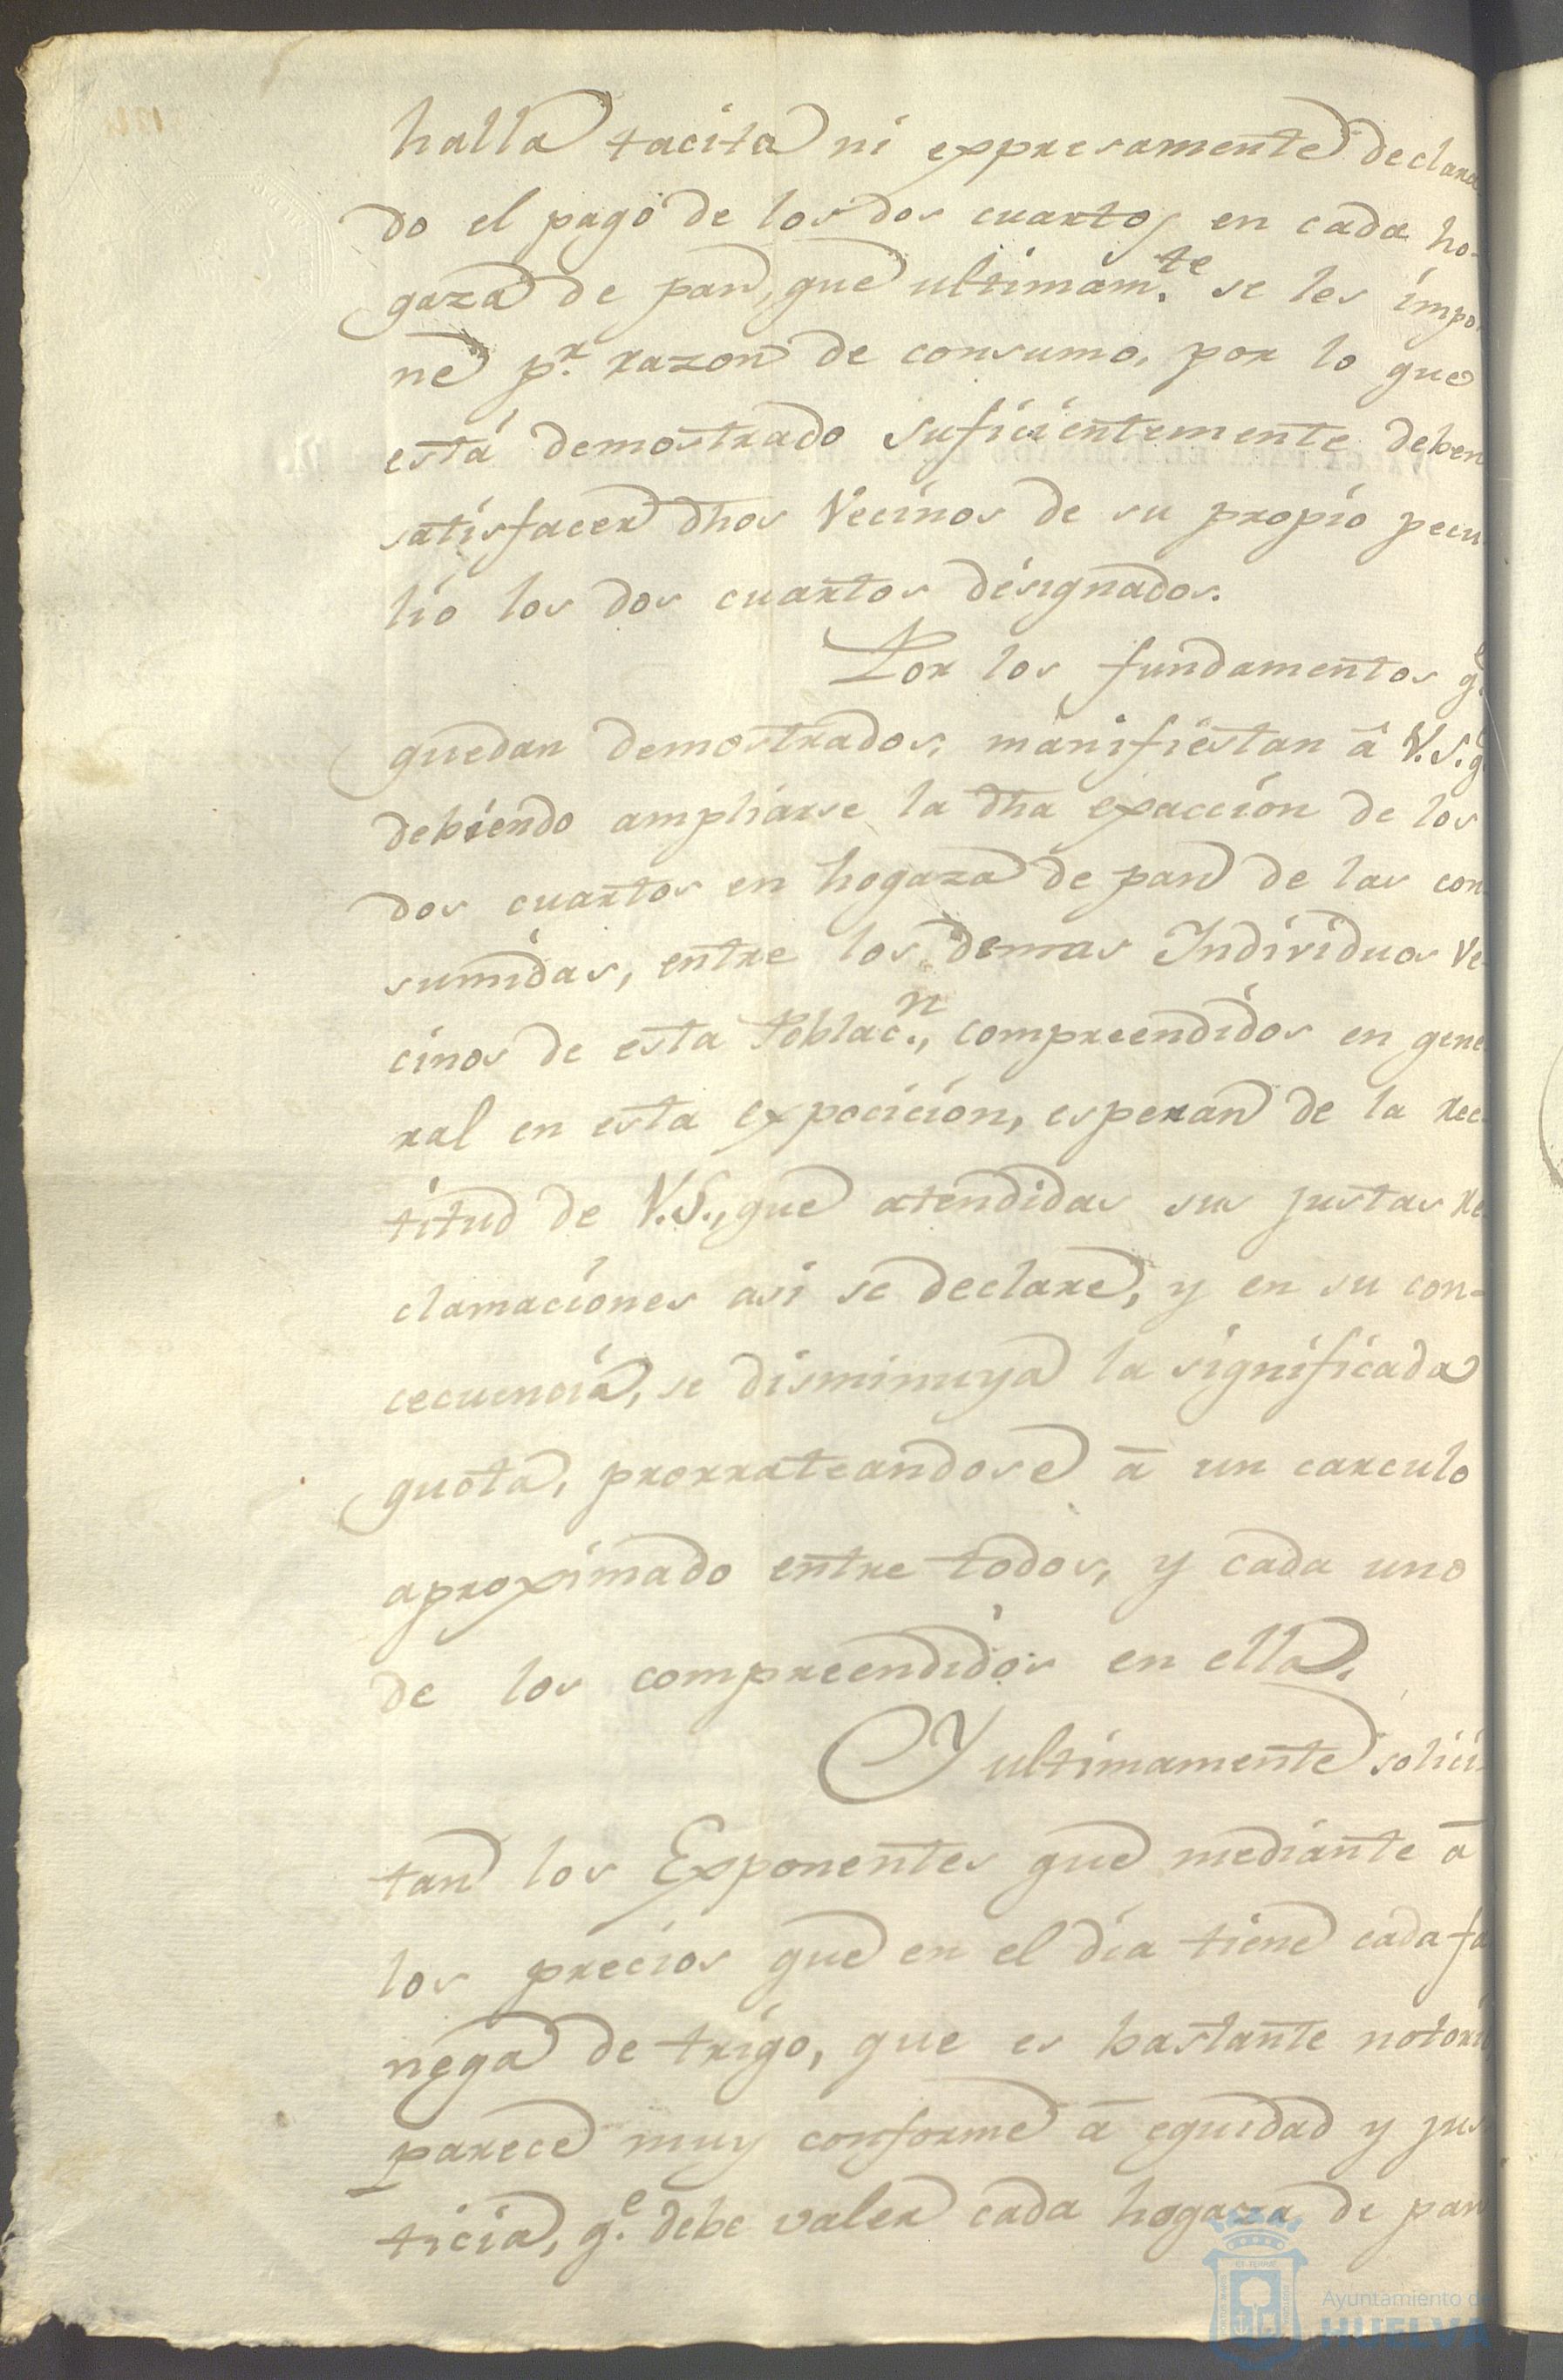 halla tacita ni expresamente declara
do el pago de los dos cuartos en cada ho-
gaza de pan, que ultimam.te se les impo
ne p.r razon de consumo, por lo que
está demostrado suficientemente deben
satisfacer dhos Vecinos de su propio pecu
lio los dos cuartos designados.
Por los fundamentos q.e
quedan demostrados, manifiestan â V.S. q.e
debiendo ampliarse la dha exaccion de los
dos cuartos en hogaza de pan de las con
sumidas, entre los demas Individuos Ve-
cinos de esta Poblac.n, compreendidos en gene
ral en esta expocicion, esperan de la rec-
titud de V.S., que atendidas sus justas re
clamaciones asi se declare, y en su con-
cecuencia, se disminuya la significada
quota, prorrateandose ā un carculo
aproximado entre todos, y cada uno
de los compreendidos en ella.
Y ultimamente solici
tan los Exponentes que mediante ā
los precios que en el dia tiene cada fa
nega de trigo, que es bastante notorio
parece muy conforme ā equidad y jus
ticia, q.e debe valer cada hogaza de pan
Ayuntamiento de
HUELVA